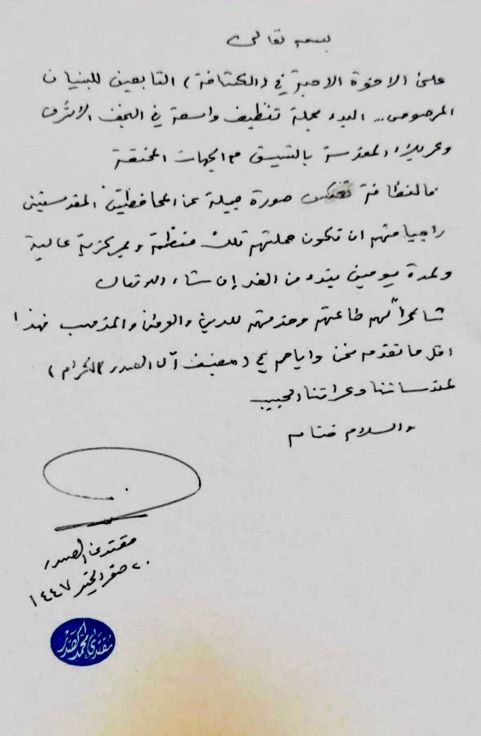 بسمه تعالى
على الاخوة الاحبة في (الكشافة) التابعين للبنيان
المرصوص.. البدء بحملة تنظيف واسعة في النجف الاشرف
وكربلاء المقدسة بالتنسيق مع الجهات المختصة
فالنظافة تعكس صورة جميلة عن المحافظتين المقدستين
راجياً منهم ان تكون حملتهم تلك منظمة وبمركزية عالية
ولمدة يومين يبتدء من الغد إن شاء الله تعالى
شاكراً لهم طاعتهم وخدمتهم للدين والوطن والمذهب فهذا
اقل ما نقدمه نحن واياهم مع (مضيف آل الصدر الكرام)
لمقدساتنا وعراقنا الحبيب
والسلام ختام
مقتدى الصدر
٢٠ صفر الخير ١٤٤٧
مقتدى محمد الصدر